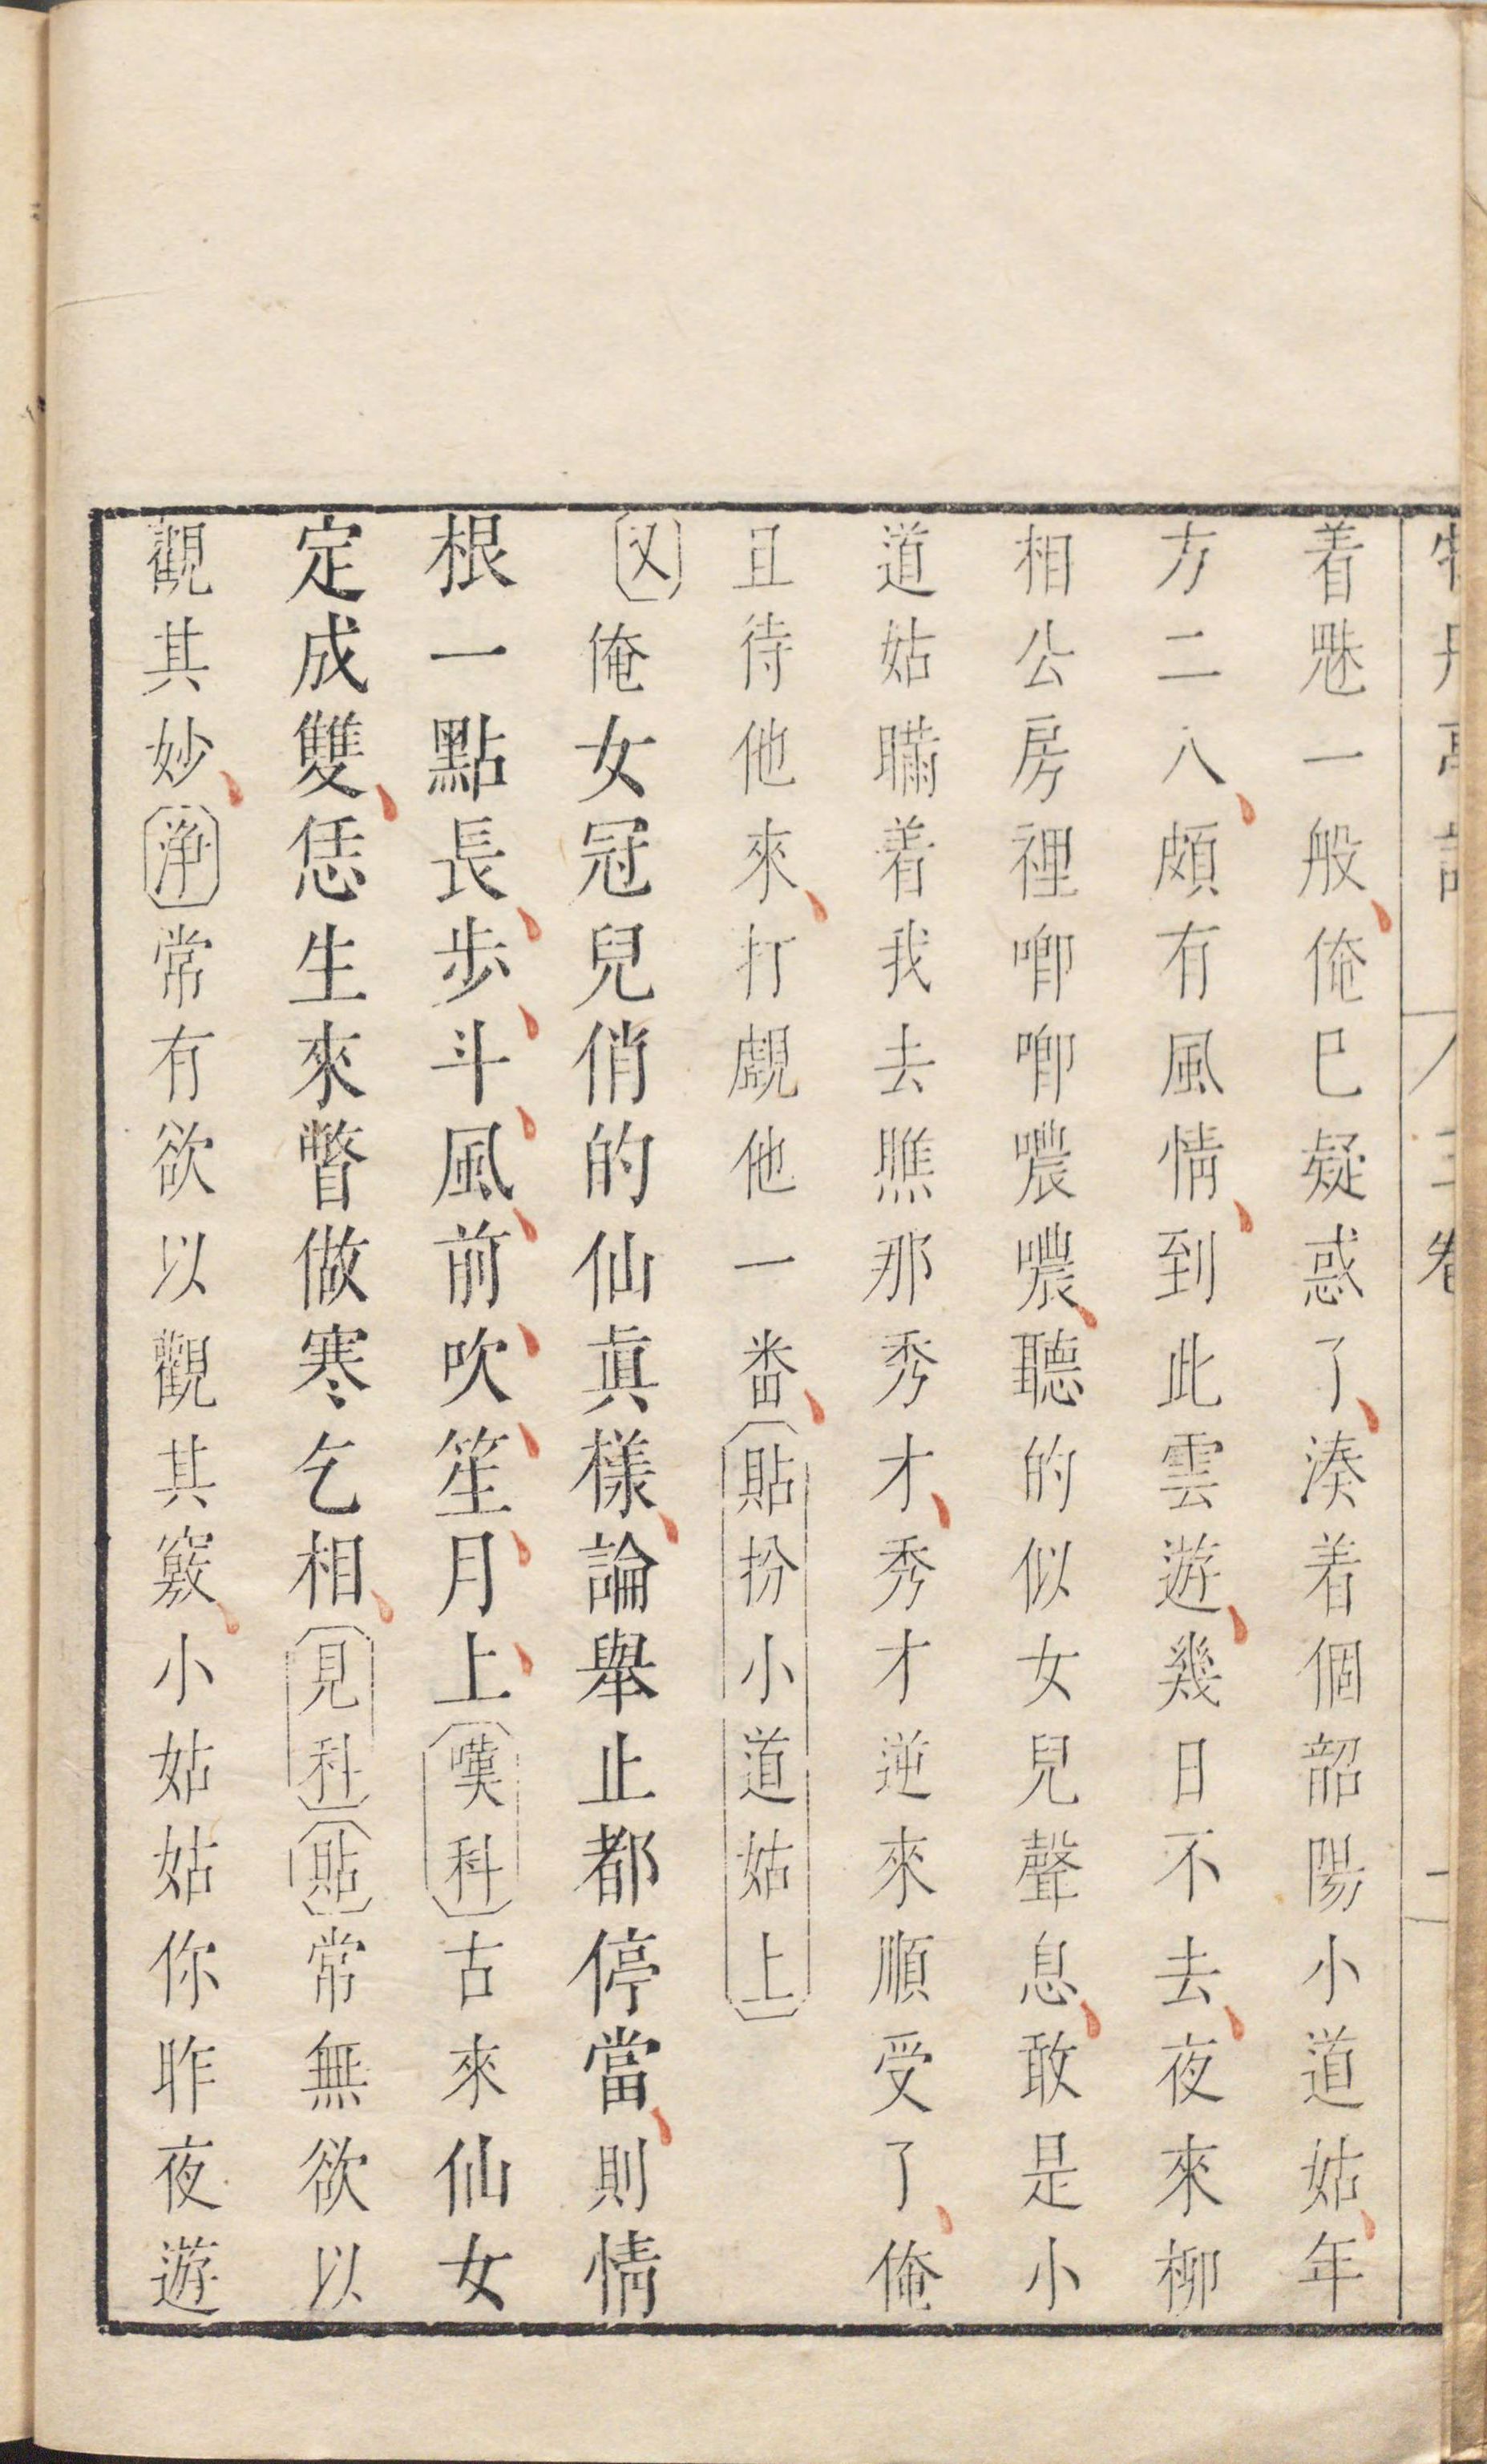 着魅一般俺已疑惑了湊着個韶陽小道姑年
方二八頗有風情到此雲遊幾日不去夜來柳
相公房裡唧唧噥噥聽的似女兒聲息敢是小
道姑瞞着我去瞧那秀才秀才逆來順受了俺
且待他來打覷他一番貼扮小道姑上
又俺女冠兒俏的仙眞樣論舉止都停當則情
根一點長步斗風前吹笙月上嘆科古來仙女
定成雙恁生來瞥做寒乞相見科貼常無欲以
觀其妙淨常有欲以觀其竅小姑姑你昨夜遊